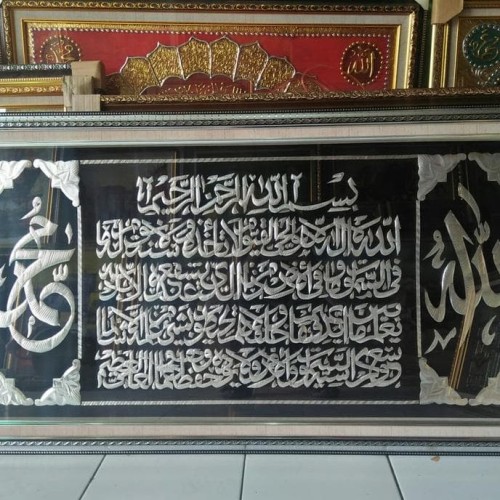 الله
الله
بسم الله الرحمن الرحيم
الله لا إله إلا هو الحي القيوم لا تأخذه سنة ولا نوم له
ما في السموات وما في الأرض من ذا الذي يشفع عنده إلا بإذنه
يعلم ما بين أيديهم وما خلفهم ولا يحيطون بشيء من علمه إلا بما شاء
وسع كرسيه السموات والأرض ولا يئوده حفظهما وهو العلي العظيم
محمد